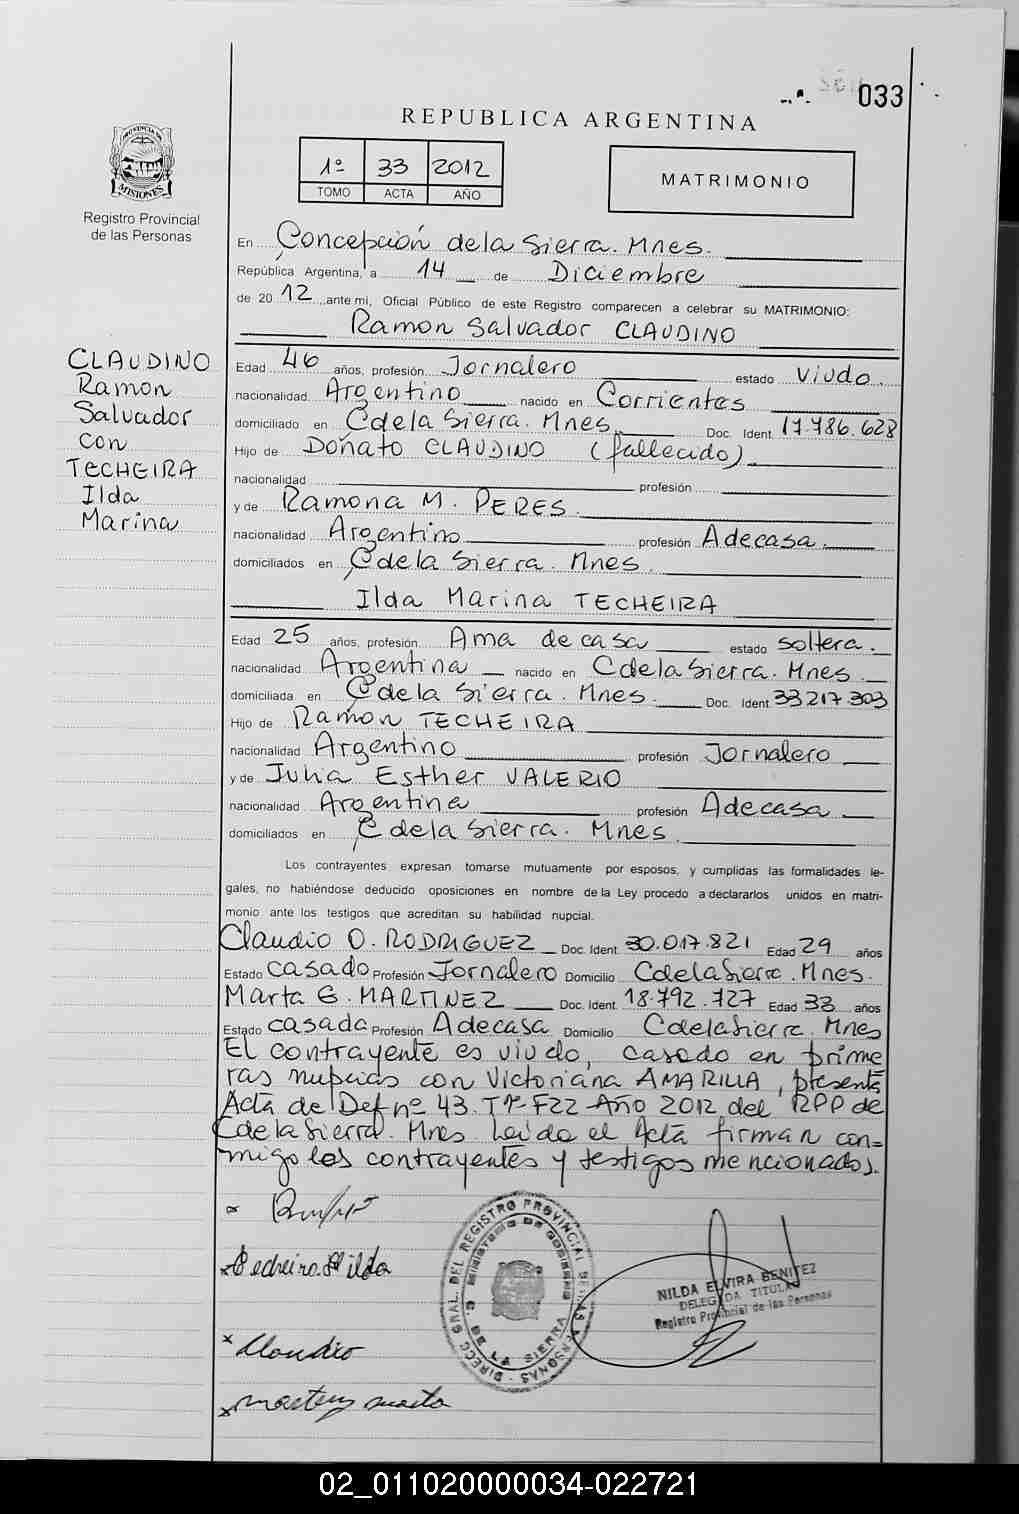 033
REPUBLICA ARGENTINA
PROVINCIA DE
MISIONES
Registro Provincial
de las Personas
1º 33 2012
TOMO ACTA AÑO
MATRIMONIO
En Concepción de la Sierra. Mnes.
República Argentina, a 14 de Diciembre
de 2012, ante mi, Oficial Público de este Registro comparecen a celebrar su MATRIMONIO:
Ramon Salvador CLAUDINO
CLAUDINO
Ramon
Salvador
con
TECHEIRA
Ilda
Marina
Edad 46 años, profesión Jornalero estado viudo.
nacionalidad Argentino nacido en Corrientes
domiciliado en C de la Sierra. Mnes. Doc. Ident. 17.786.628
Hijo de Donato CLAUDINO (fallecido).
nacionalidad profesión
y de Ramona M. PERES.
nacionalidad Argentino profesión Adecasa.
domiciliados en C de la Sierra. Mnes.
Ilda Marina TECHEIRA
Edad 25 años, profesión Ama de casa estado soltera.
nacionalidad Argentina nacido en C de la Sierra. Mnes.
domiciliada en C de la Sierra. Mnes. Doc. Ident. 33217.303
Hijo de Ramon TECHEIRA
nacionalidad Argentino profesión Jornalero
y de Julia Esther VALERIO
nacionalidad Argentina profesión Adecasa
domiciliados en C de la Sierra. Mnes.
Los contrayentes expresan tomarse mutuamente por esposos, y cumplidas las formalidades le-
gales, no habiéndose deducido oposiciones en nombre de la Ley procedo a declararlos unidos en matri-
monio ante los testigos que acreditan su habilidad nupcial.
Claudio O. RODRIGUEZ Doc. Ident. 30.017.821 Edad 29 años
Estado casado Profesión Jornalero Domicilio C de la Sierra. Mnes.
Marta G. MARTINEZ Doc. Ident. 18.792.727 Edad 33 años
Estado casada Profesión Adecasa Domicilio C de la Sierra. Mnes
El contrayente es viudo, casado en prime
ras nupcias con Victoriana AMARILLA, presenta
Acta de Def nº 43. Tº 1º F22 Año 2012 del RPP de
C de la Sierra. Mnes. Leida el Acta firman con=
migo los contrayentes y testigos mencionados.
x
x Techeira Ilda
x Claudio
x martinez marta
DIRECC. GRAL. DEL REGISTRO PROVINCIAL DE LAS PERSONAS
MINISTERIO DE GOBIERNO
C. DE LA SIERRA
NILDA ELVIRA BENITEZ
DELEGADA TITULAR
Registro Provincial de las Personas
02_011020000034-022721